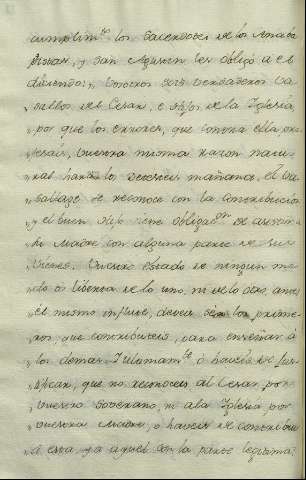 cumplim.to los Sacerdotes de los
y San Agustin les obligó á el
diciendo: Vosotros sois verdaderos Va-
sallos del Cesar, é hijos de la Iglesia,
por que los errores, que contra ella pro-
fesais, vuestra misma razon natu-
ral hará lo detesteis mañana, el Va-
sallage se reconoce con la Contribucion
y el buen hijo tiene obligac.on de asistir á
su Madre con alguna parte de sus
vienes. Vuestro Estado de ningun mo-
do os liberta de lo uno, ni de lo otro, antes
él mismo influye, deveis ser los prime-
ros que contribuieis, para enseñar á
los demas. Ultimam.te ó haveis de
que no reconoceis al Cesar por
vuestro Soberano, ni a la Iglesia por
vuestra Madre, ó haveis de contribuir
á esta, y a aquel con la parte legitima,